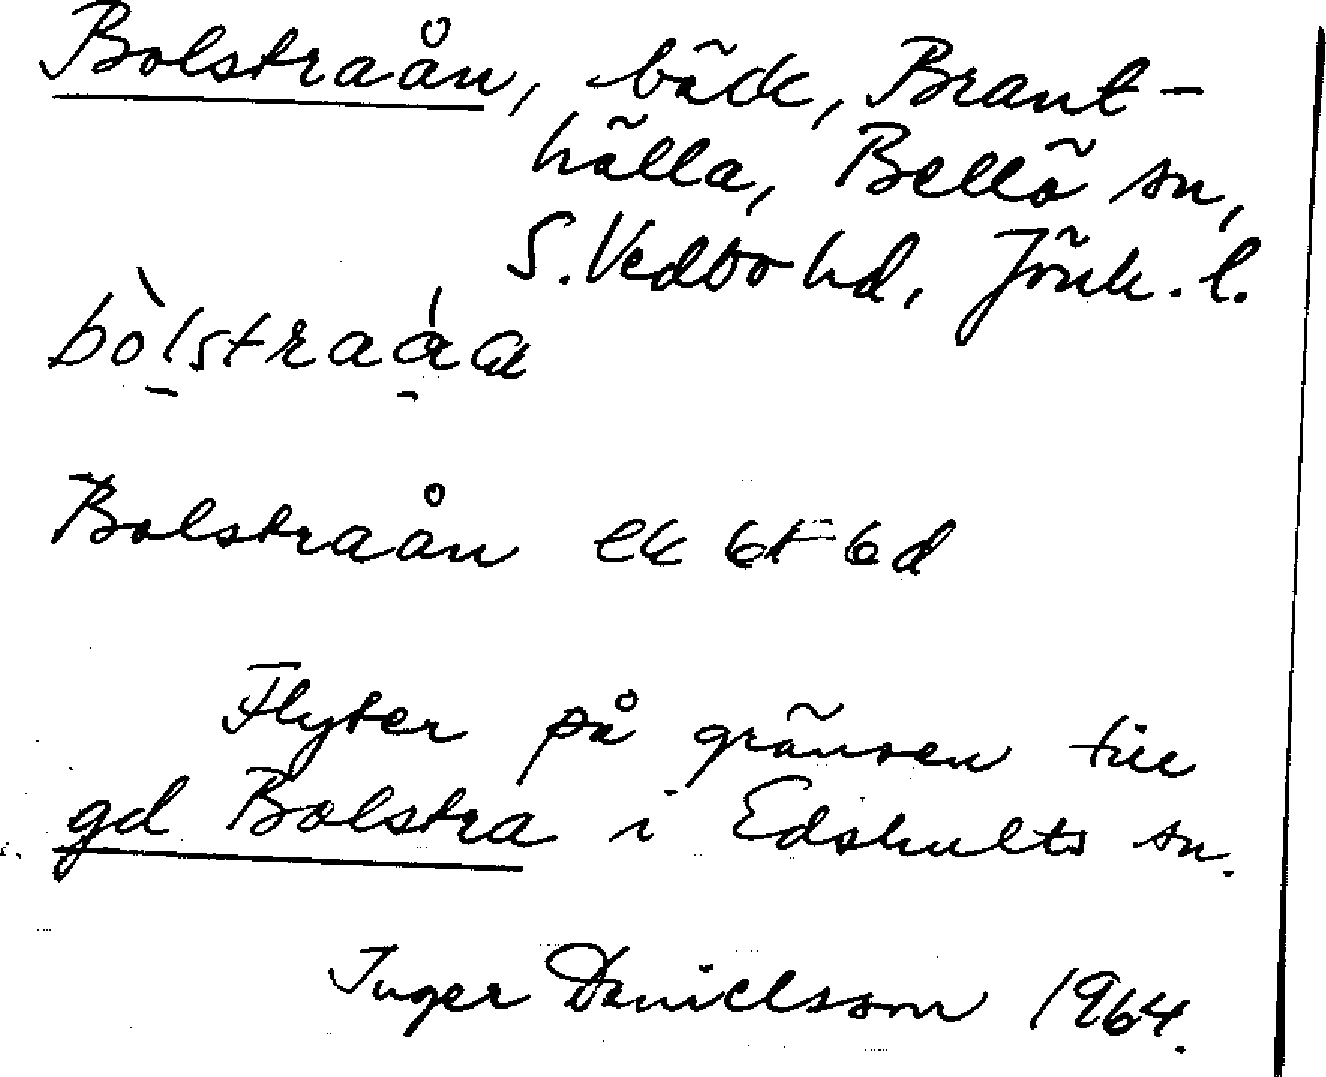 Bolstraån, bäck, Brant-
hälla, Bellö sn,
S. Vedbo hd, Jönk. l.
Bolstraån ek 6f 6d
Flyter på gränsen till
gd Bolstra i Edshults sn.
Inger Danielsson 1964.